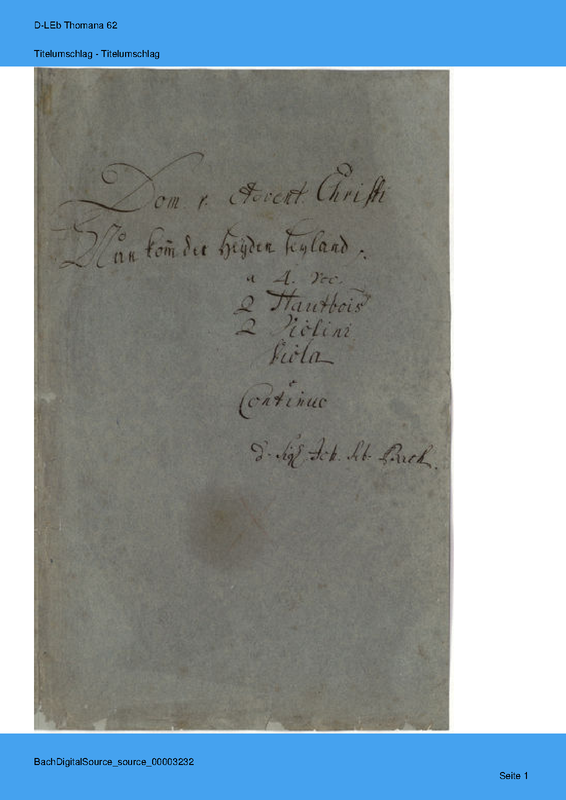 D-LEb Thomana 62
Titelumschlag - Titelumschlag
Dom. 1. Advent. Christi
Nun kom̅ der Heyden Heyland.
a 4. Voc.
2 Hautbois
2 Violini
Viola
e
Continuo
d. Sigl. Joh. Seb. Bach.
BachDigitalSource_source_00003232
Seite 1